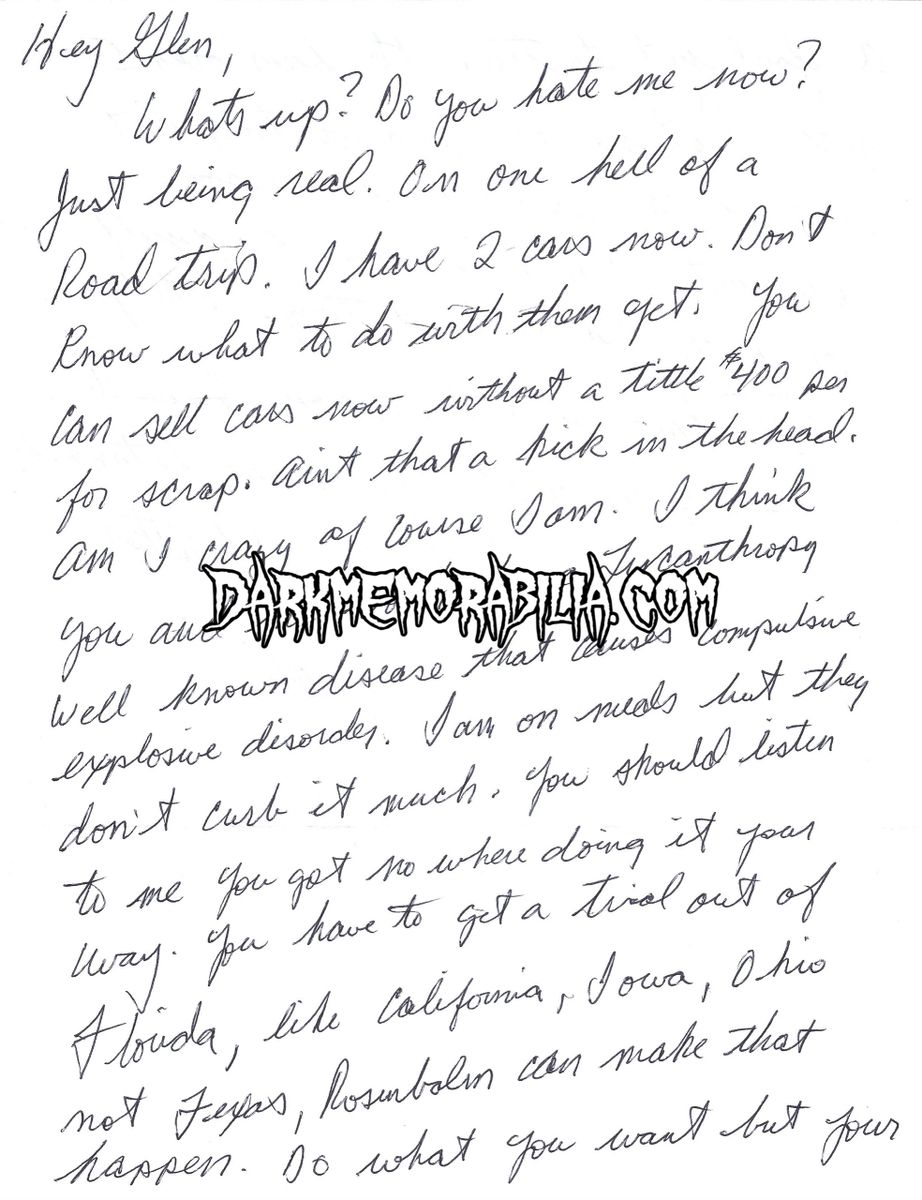 Hey Glen,
Whats up? Do you hate me now?
Just being real. On one hell of a
Road trip. I have 2 cars now. Don't
Know what to do with them yet. You
Can sell cars now without a tittle $400 per
for scrap. Aint that a kick in the head.
Am I crazy of course I am. I think
you and Lycanthropy
DARKMEMORABILIA.COM
Well known disease that causes compulsive
explosive disorder. I am on meds but they
don't curb it much. You should listen
to me you got no where doing it your
way. You have to get a trial out of
Florida, like California, Iowa, Ohio
not Texas, Rosenbalm can make that
happen. Do what you want but your